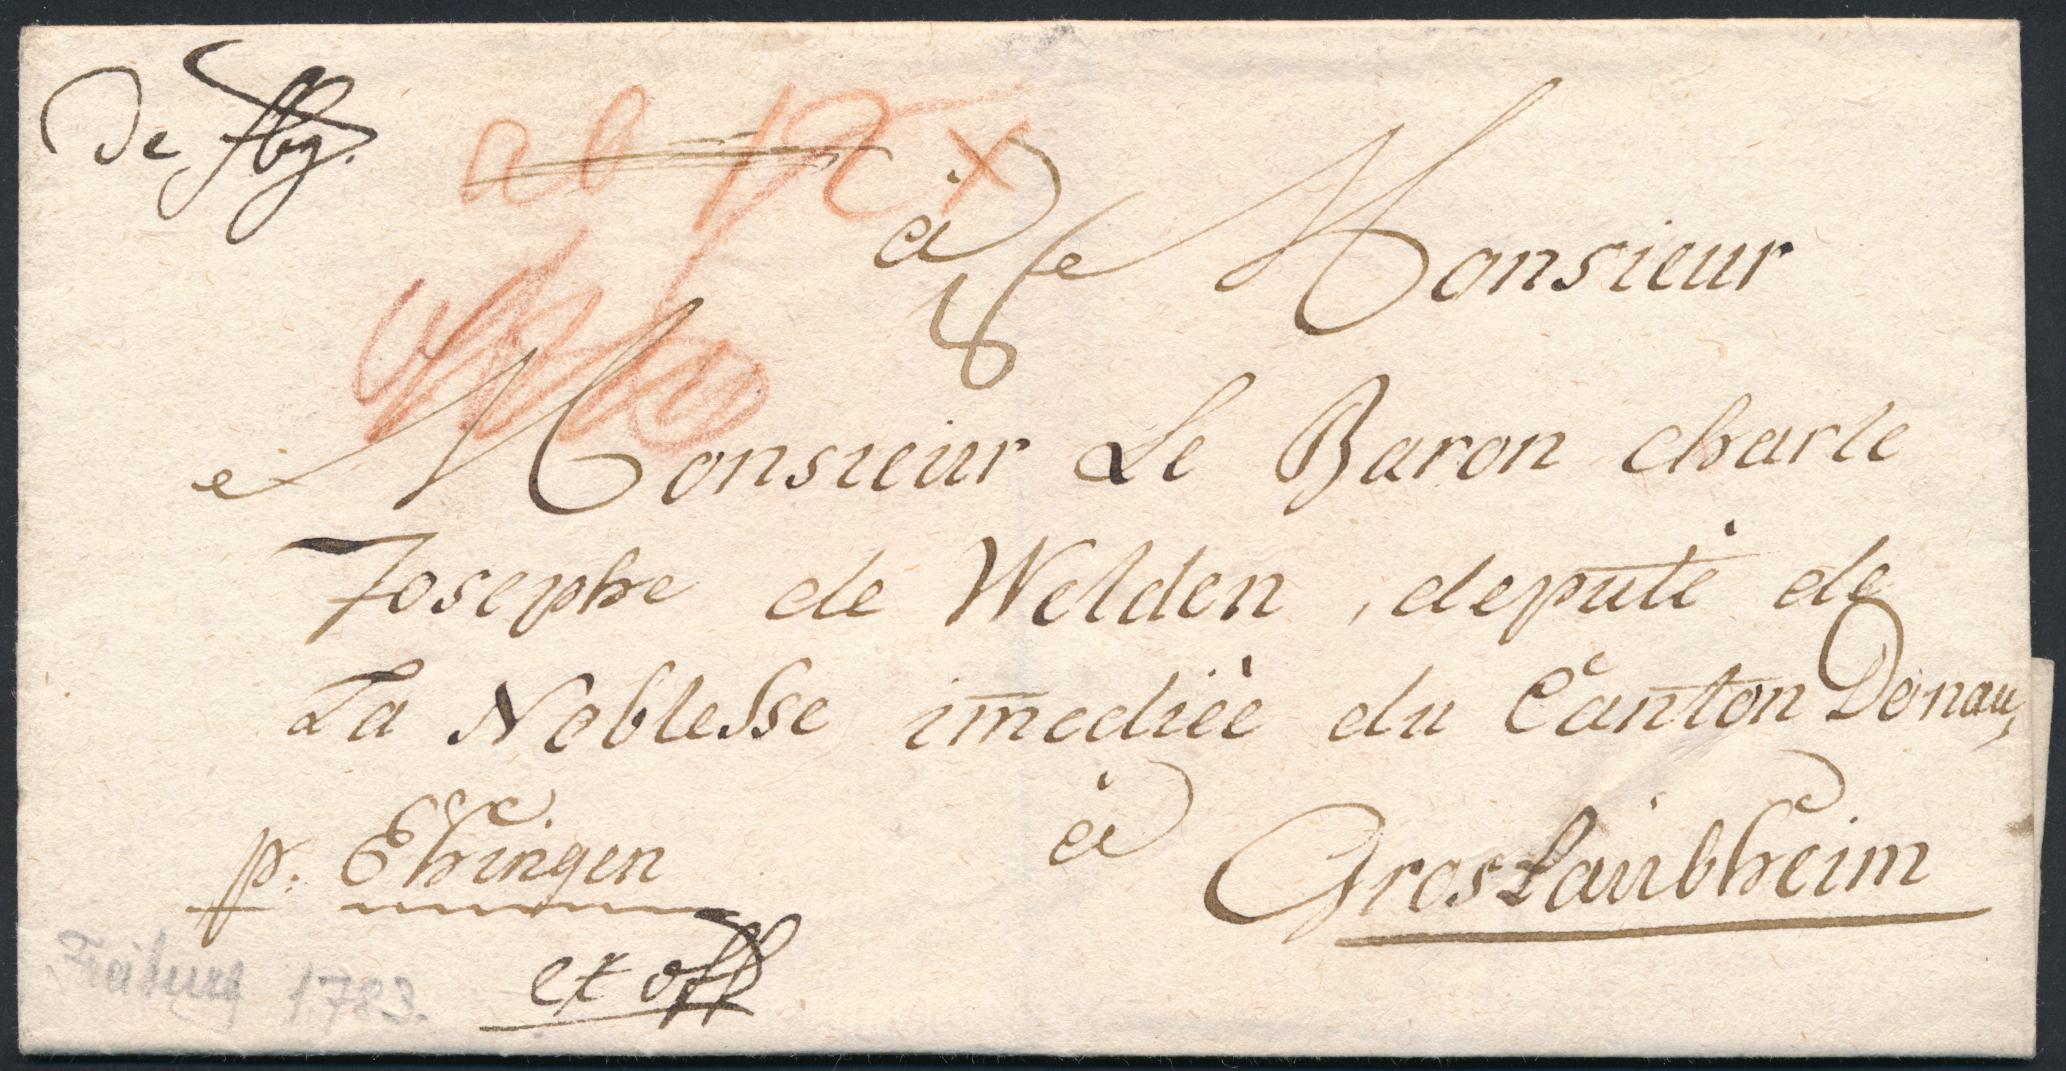 de fbg.
ab 12 x
à Monsieur
Monsieur Le Baron charle
Josephe de Welden, deputé de
La Noblesse im̄ediée du Canton Donau,
à
p: Ehingen
Groslaubheim
ex off
Freiburg 1783.